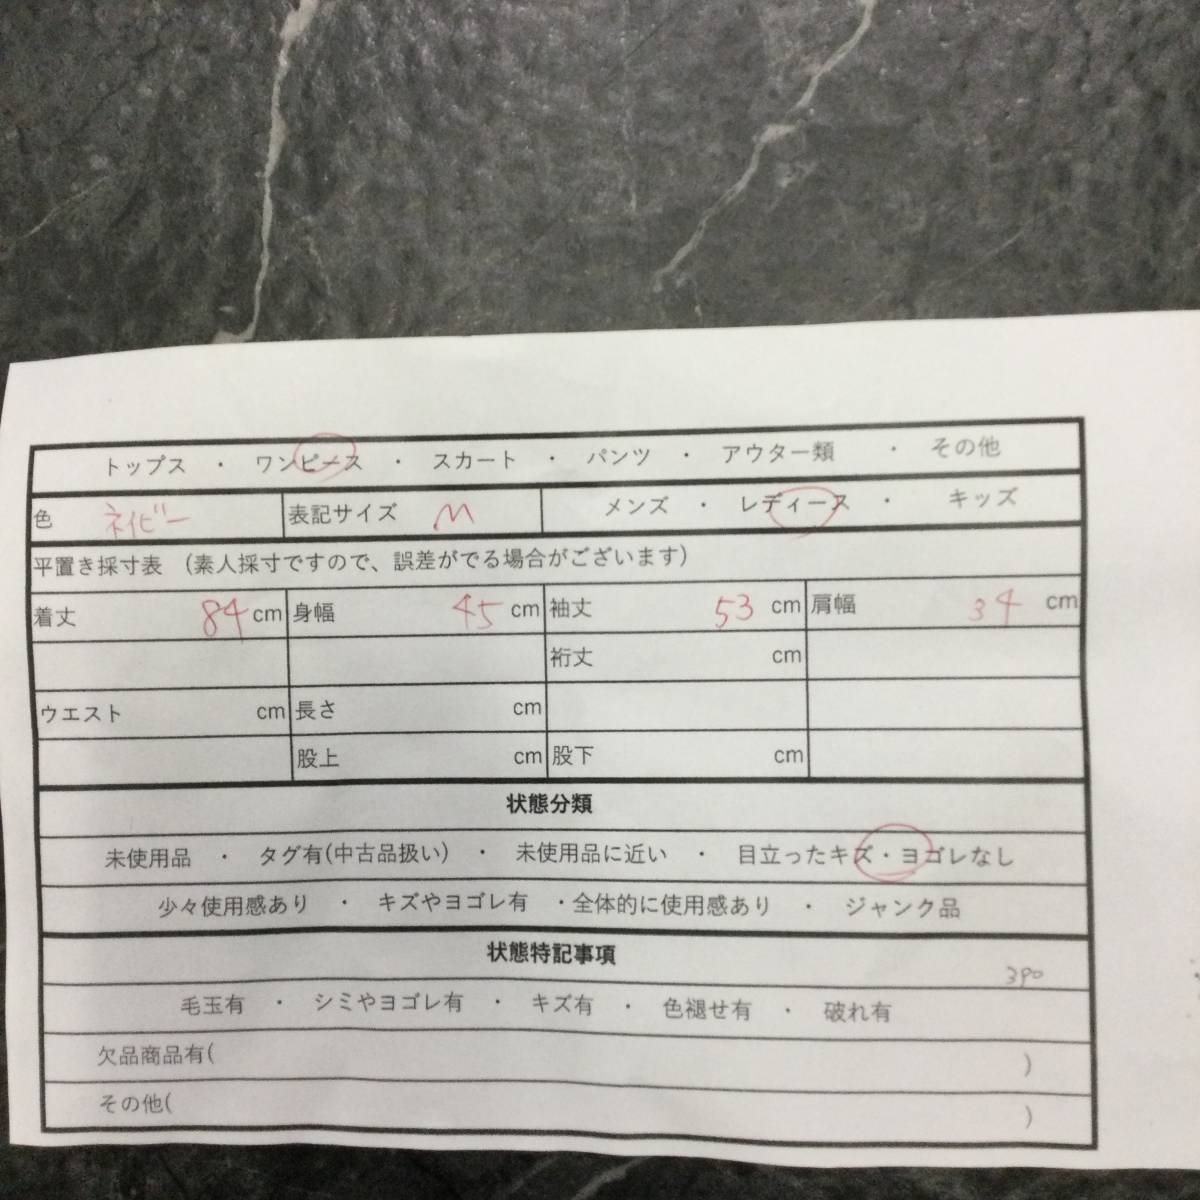 トップス ・ ワンピース ・ スカート ・ パンツ ・ アウター類 ・ その他
色 ネイビー 表記サイズ M メンズ ・ レディース ・ キッズ
平置き採寸表 （素人採寸ですので、誤差がでる場合がございます）
着丈 84 cm 身幅 45 cm 袖丈 53 cm 肩幅 34 cm
裄丈 cm
ウエスト cm 長さ cm
股上 cm 股下 cm
状態分類
未使用品 ・ タグ有(中古品扱い) ・ 未使用品に近い ・ 目立ったキズ・ヨゴレなし
少々使用感あり ・ キズやヨゴレ有 ・全体的に使用感あり ・ ジャンク品
状態特記事項
390
毛玉有 ・ シミやヨゴレ有 ・ キズ有 ・ 色褪せ有 ・ 破れ有
欠品商品有( )
その他( )